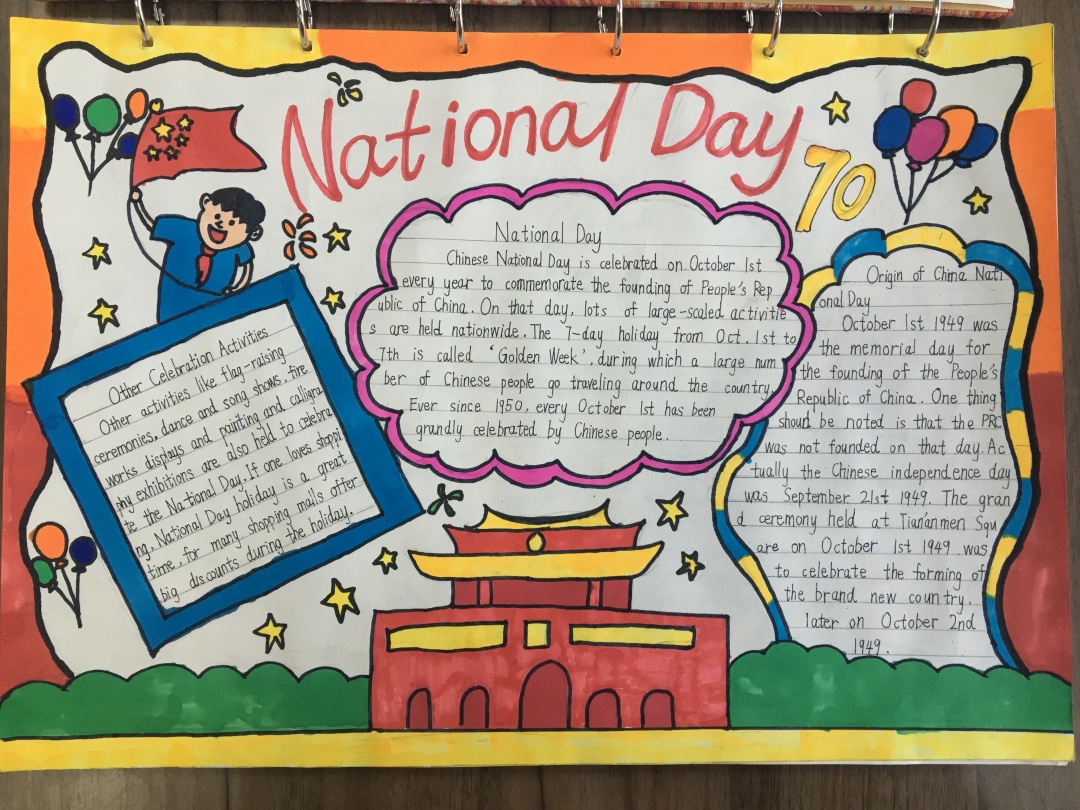 National Day
70
National Day
Chinese National Day is celebrated on October 1st
every year to commemorate the founding of People's Rep
ublic of China. On that day, lots of large-scaled activitie
s are held nationwide. The 7-day holiday from Oct. 1st to
7th is called 'Golden Week', during which a large num
ber of Chinese people go traveling around the country.
Ever since 1950, every October 1st has been
grandly celebrated by Chinese people.
Other Celebration Activities
Other activities like flag-raising
ceremonies, dance and song shows, fire
works displays and painting and calligra
phy exhibitions are also held to celebra
te the National Day. If one loves shoppi
ng, National Day holiday is a great
time, for many shopping malls offer
big discounts during the holiday.
Origin of China Nati
onal Day
October 1st 1949 was
the memorial day for
the founding of the People's
Republic of China. One thing
shourd be noted is that the PRC
was not founded on that day. Ac
tually the Chinese independence day
was September 21st 1949. The gran
d ceremony held at Tian'anmen Squ
are on October 1st 1949 was
to celebrate the forming of
the brand new country.
later on October 2nd
1949.